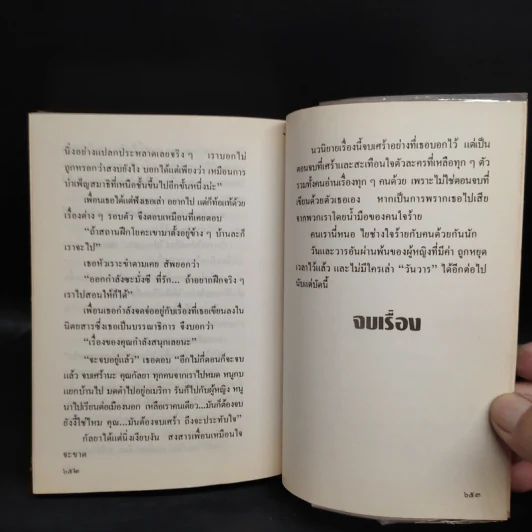 นิ่งอย่างแปลกประหลาดเลยจริง ๆ เราบอกไม่
ถูกหรอกว่าสงบยังไง บอกได้แต่เพียงว่า เหมือนการ
บำเพ็ญสมาธิที่เหนือชั้นขึ้นไปอีกขั้นหนึ่งน่ะ”
เพื่อนเธอได้แต่ฟังเธอเล่า อยากไป แต่ก็ท้อแท้ด้วย
เรื่องต่าง ๆ รอบตัว จึงตอบเหมือนที่เคยตอบ
“ถ้าสถานฝึกโยคะเขามาตั้งอยู่ข้าง ๆ บ้านละก็
เราจะไป”
เธอหัวเราะขำตามเคย สัพยอกว่า
“ออกกำลังซะมั่งซี ที่รัก... ถ้าอยากฝึกจริง ๆ
เราไปสอนให้ก็ได้”
เพื่อนเธอกำลังจดจ่ออยู่กับเรื่องที่เธอเขียนลงใน
นิตยสารซึ่งเธอเป็นบรรณาธิการ จึงบอกว่า
“เรื่องของคุณกำลังสนุกเลยนะ”
“จะจบอยู่แล้ว” เธอตอบ “อีกไม่กี่ตอนก็จะจบ
แล้ว จบเศร้านะ คุณกัลยา ทุกคนจากเราไปหมด หนูกบ
แยกบ้านไป มดดำไปอยู่อเมริกา รันก็ไปกับผู้หญิง หนู
นาไปเรียนต่อเมืองนอก เหลือเราคนเดียว...มันก็ต้องจบ
ยังงี้ใช่ไหม คุณ...มันต้องจบเศร้า ถึงจะประทับใจ”
กัลยาได้แต่นิ่งเงียบงัน สงสารเพื่อนเหมือนใจ
จะขาด
๖๕๒
นวนิยายเรื่องนี้จบเศร้าอย่างที่เธอบอกไว้ แต่เป็น
ตอนจบที่เศร้าและสะเทือนใจตัวละครที่เหลือทุก ๆ ตัว
รวมทั้งคนอ่านเรื่องทุก ๆ คนด้วย เพราะไม่ใช่ตอนจบที่
เขียนด้วยตัวเธอเอง หากเป็นการพรากเธอไปเสีย
จากพวกเราโดยน้ำมือของคนใจร้าย
คนเรานี่หนอ ใยช่างใจร้ายกับคนด้วยกันนัก
วันและวารอันผ่านพ้นของผู้หญิงที่มีค่า ถูกหยุด
เวลาไว้แล้ว และไม่มีใครเล่า “วันวาร” ได้อีกต่อไป
นับแต่บัดนี้
จบเรื่อง
๖๕๓